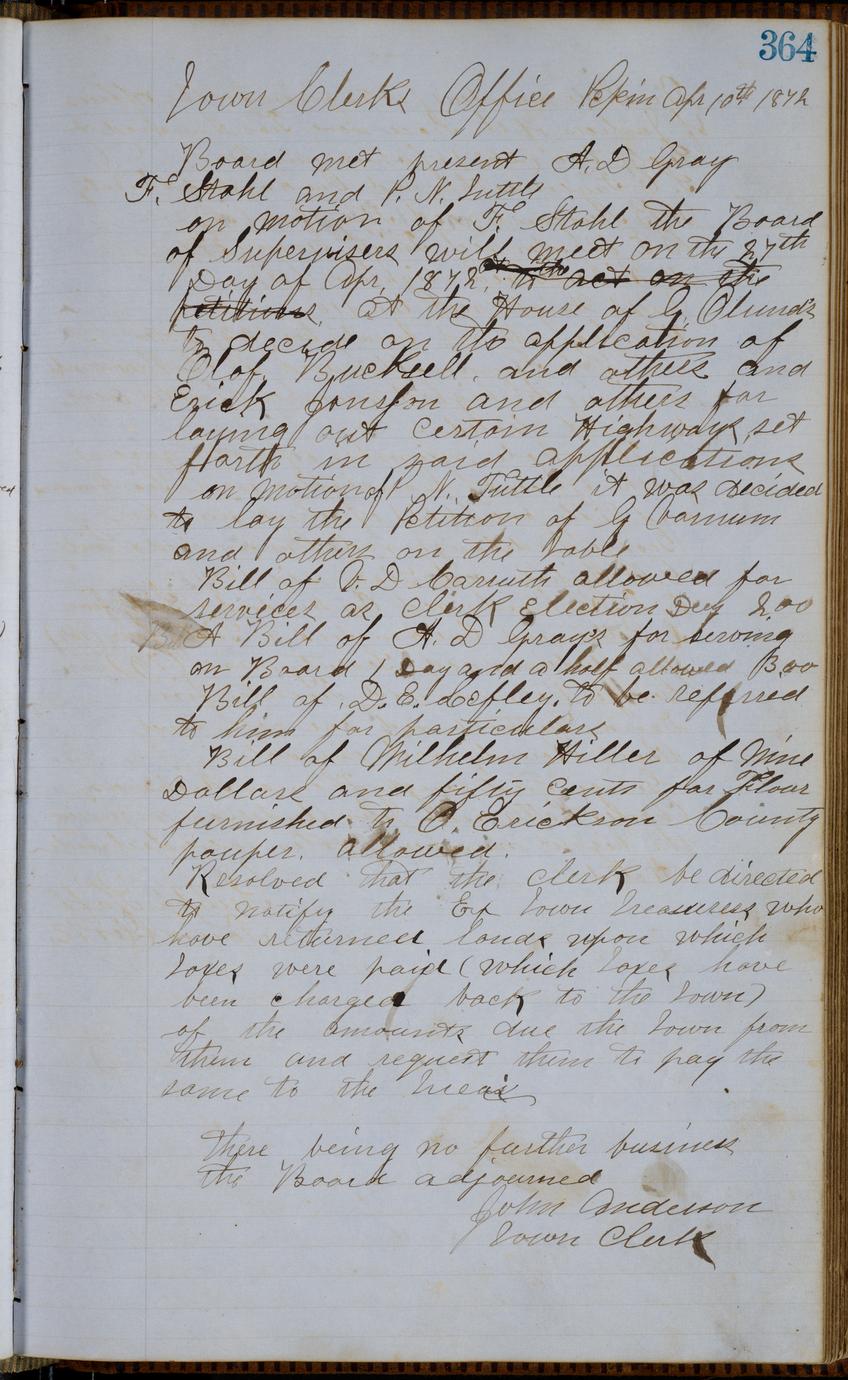 364
Town Clerks Office Pepin Apr 10th 1872
Board met present A. D Gray
F. Stahl and P. N. Tuttle
on motion of F. Stahl the Board
of Supervisers will meet on the 27th
Day of Apr. 1872, to act on the
petitions, at the House of G. Olunds
to decide on the application of
Olof Bucksell. and others and
Erick Jonsson and others for
laying out certain Highways set
forth in said applications
on motion of P. N. Tuttle it was decided
to lay the Petition of G Varnum
and others on the table
Bill of V. D Carruth allowed for
services as clerk Election Day 2.00
A Bill of A. D Grays for serving
on Board 1 Day and a half allowed 3.00
Bill of D. E. Lefley. to be referred
to him for particulars
Bill of Wilhelm Hiller of Nine
Dollars and fifty cents for Flour
furnished to O. Erickson County
pauper. allowed.
Resolved that the clerk be directed
to notify the Ex Town Treasurers who
have returned lands upon which
Taxes were paid (which Taxes have
been charged back to the Town)
of the amounts due the Town from
them and request them to pay the
same to the Treas
there being no further business
the Board adjourned
John Anderson
Town Clerk